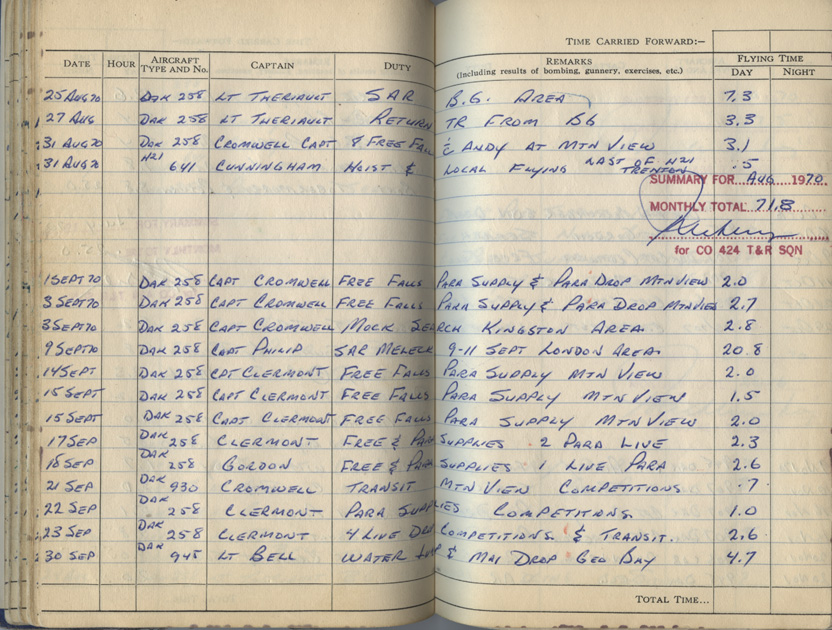 TIME CARRIED FORWARD:—
DATE HOUR AIRCRAFT TYPE AND No. CAPTAIN DUTY REMARKS (Including results of bombing, gunnery, exercises, etc.) FLYING TIME DAY NIGHT
25 AUG 70 DAK 258 LT THERIAULT SAR B.G. AREA 7.3
27 AUG DAK 258 LT THERIAULT RETURN TR FROM BG 3.3
31 AUG 70 DAK 258 CROMWELL CAPT & FREE FALL & ANDY AT MTN VIEW 3.1
31 AUG 70 H21 641 CUNNINGHAM HOIST & LOCAL FLYING LAST OF H21 TRENTON .5
SUMMARY FOR AUG 1970
MONTHLY TOTAL 71.8
for CO 424 T&R SQN
1 SEPT 70 DAK 258 CAPT CROMWELL FREE FALLS PARA SUPPLY & PARA DROP MTN VIEW 2.0
3 SEPT 70 DAK 258 CAPT CROMWELL FREE FALLS PARA SUPPLY & PARA DROP MTN VIEW 2.7
3 SEPT 70 DAK 258 CAPT CROMWELL MOCK SEARCH KINGSTON AREA 2.8
9 SEPT 70 DAK 258 CAPT PHILIP SAR 9-11 SEPT LONDON AREA 20.8
14 SEPT DAK 258 CAPT CLERMONT FREE FALLS PARA SUPPLY MTN VIEW 2.0
15 SEPT DAK 258 CAPT CLERMONT FREE FALLS PARA SUPPLY MTN VIEW 1.5
15 SEPT DAK 258 CAPT CLERMONT FREE FALLS PARA SUPPLY MTN VIEW 2.0
17 SEP DAK 258 CLERMONT FREE & PARA SUPPLIES 2 PARA LIVE 2.3
18 SEP DAK 258 GORDON FREE & PARA SUPPLIES 1 LIVE PARA 2.6
21 SEP DAK 930 CROMWELL TRANSIT MTN VIEW COMPETITIONS .7
22 SEP DAK 258 CLERMONT PARA SUPPLIES COMPETITIONS 1.0
23 SEP DAK 258 CLERMONT 4 LIVE COMPETITIONS & TRANSIT 2.6
30 SEP DAK 945 LT BELL WATER & MAI DROP GEO BAY 4.7
TOTAL TIME...